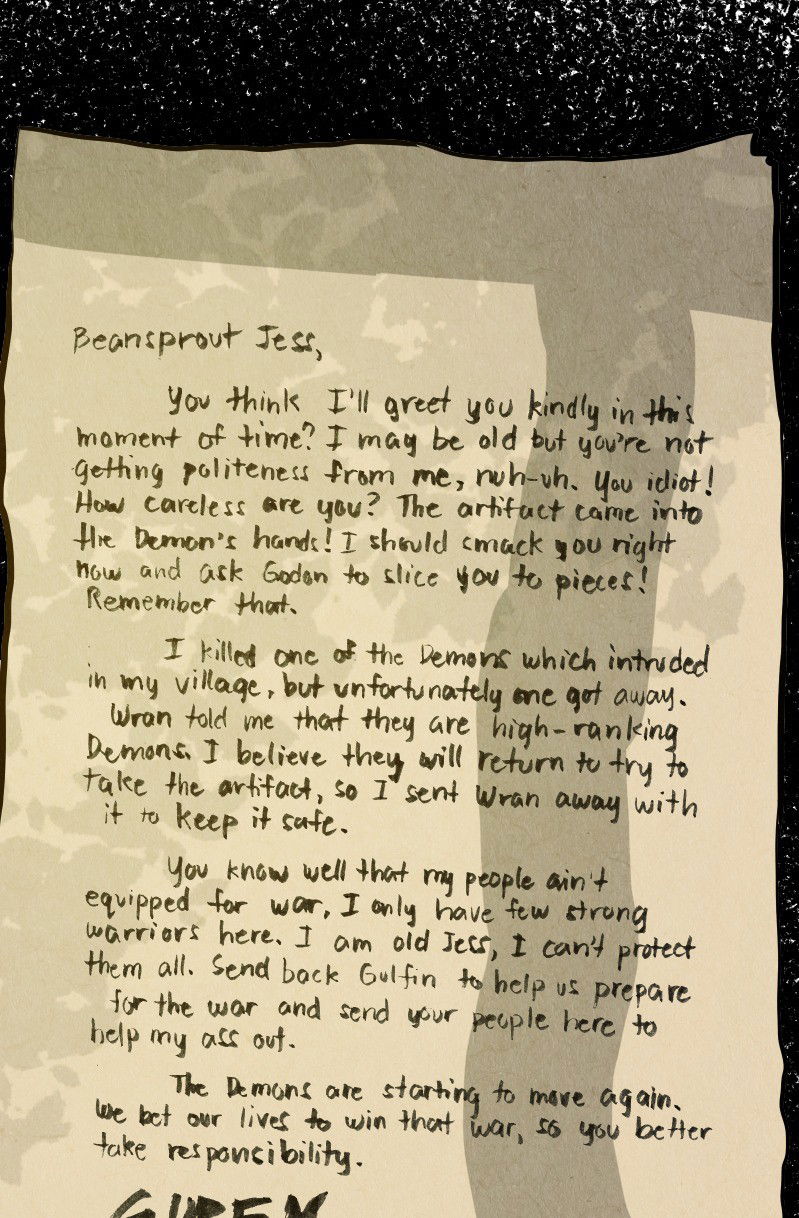 Beansprout Jess,
You think I'll greet you kindly in this
moment of time? I may be old but you're not
getting politeness from me, nuh-uh. You idiot!
How careless are you? The artifact came into
the Demon's hands! I should smack you right
now and ask Godon to slice you to pieces!
Remember that.
I killed one of the Demons which intruded
in my village, but unfortunately one got away.
Wran told me that they are high-ranking
Demons. I believe they will return to try to
take the artifact, so I sent Wran away with
it to keep it safe.
You know well that my people ain't
equipped for war, I only have few strong
warriors here. I am old Jess, I can't protect
them all. Send back Gulfin to help us prepare
for the war and send your people here to
help my ass out.
The Demons are starting to move again.
We bet our lives to win that war, so you better
take responsibility.